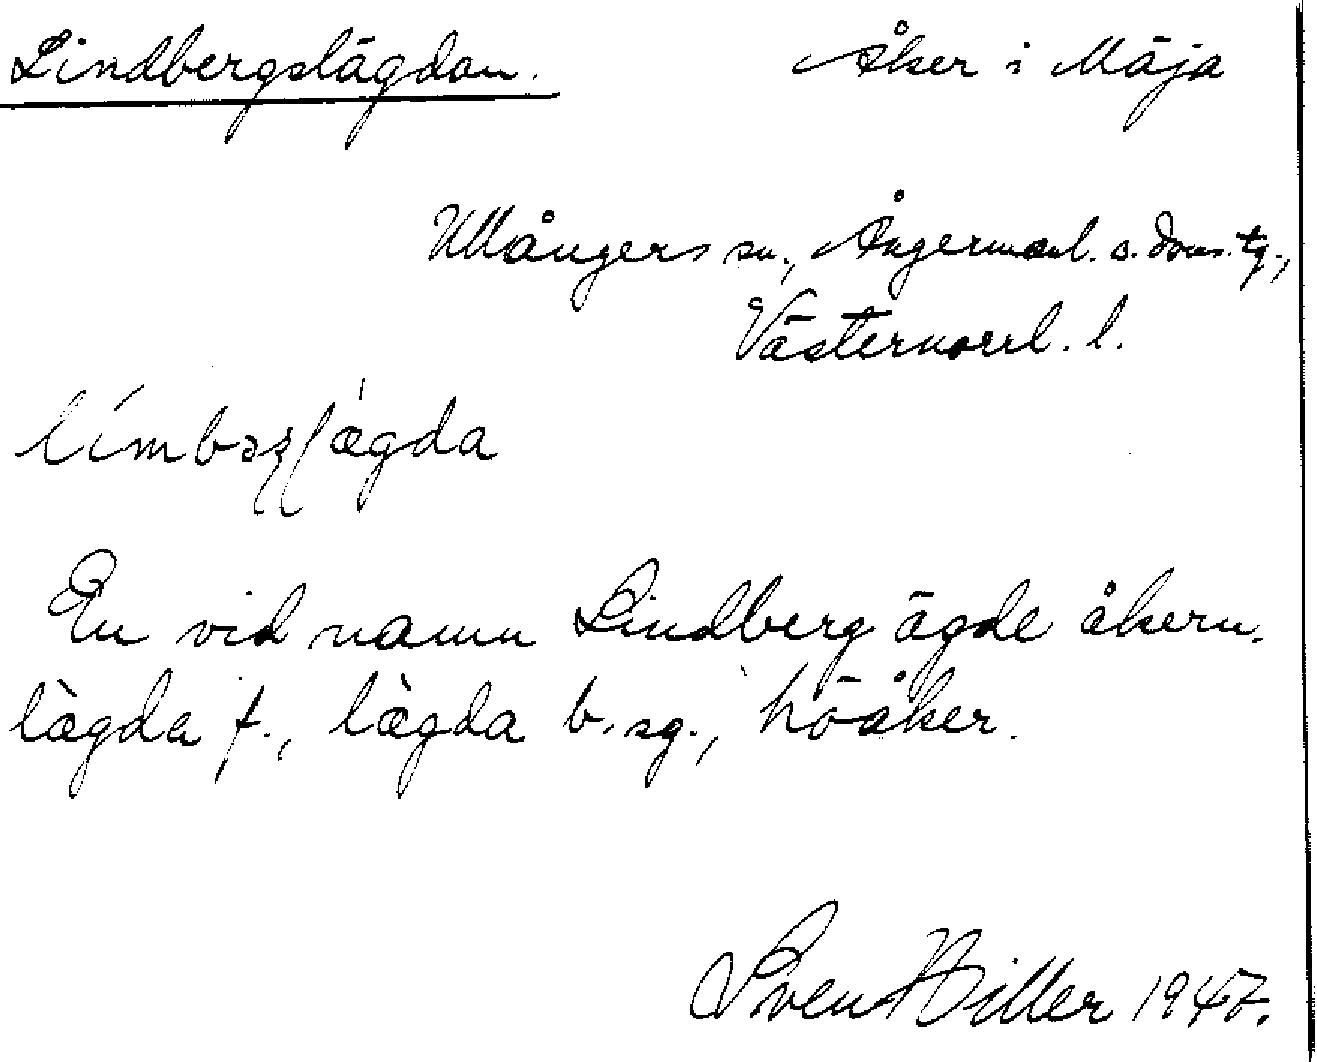 Lindbergslägdan. Åker i Mäja
Ullångers sn., Ångermanl. s. doms. tg.,
Västernorrl. l.
límbəʂʃæ̀gda
En vid namn Lindberg ägde åkern.
læ̀gda f., læ̀gda b. sg., höåker.
Sven Hiller 1947.